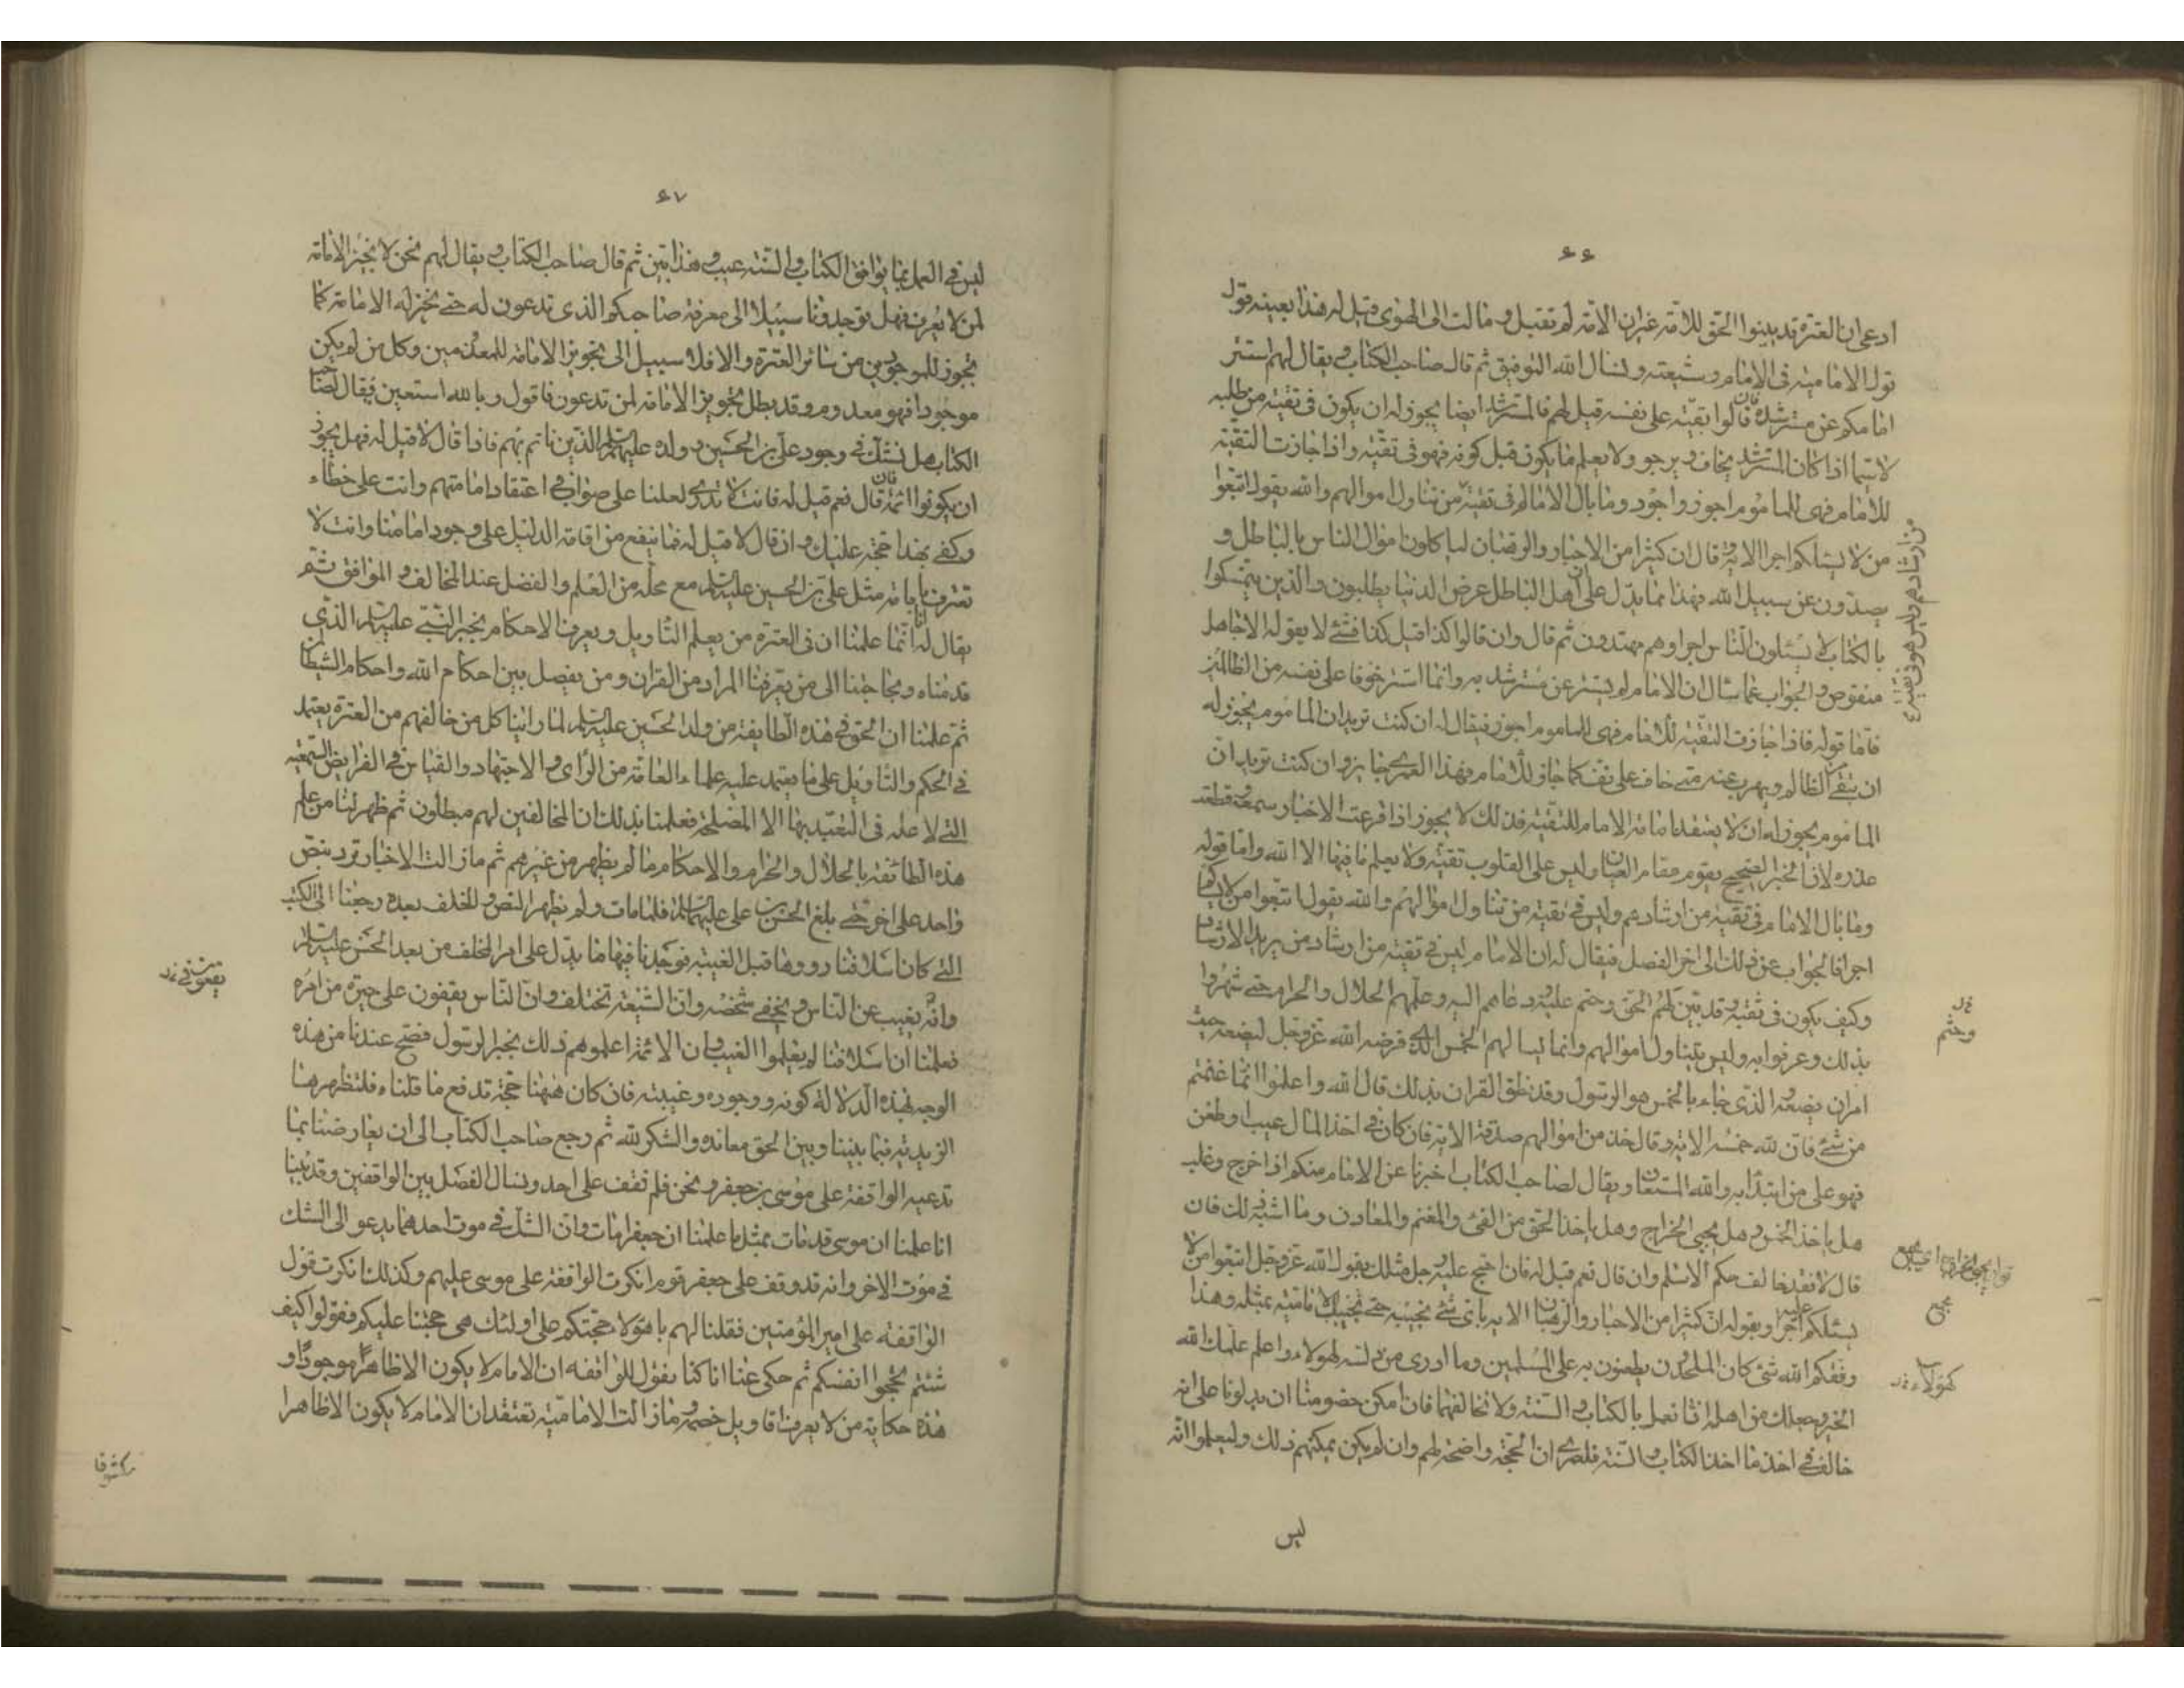 ٦٦
ادعى ان العترة قد بينوا الحق للامة غير ان الامة لم تقبل و مالت الى الهوى فقيل له هذا بعينه قول
قول الامامية فى الامام و شيعته و نسال الله التوفيق ثم قال صاحب الكتاب و يقال لهم استتر
امامكم عن مسترشده فان قالوا تقية على نفسه قيل لهم فالمسترشد ايضا يجوز له ان يكون فى تقية من طلبه
لا سيما اذا كان المسترشد يخاف و يرجو ولا يعلم ما يكون قبل كونه فهو فى تقية واذا جازت التقية
للامام فهى للماموم اجوز واجود وما بال الامام فى تقية من تناول اموالهم والله يقول اتبعوا
من لا يسئلكم اجرا الاية وقال ان كثيرا من الاحبار والرهبان لياكلون اموال الناس بالباطل و
يصدون عن سبيل الله فهذا مما يدل على ان اهل الباطل عرض الدنيا يطلبون والذين يتمسكوا
بالكتاب لا يسئلون الناس اجرا وهم مهتدون ثم قال وان قالوا كذا قيل كذا فشئ لا يقوله الا جاهل
منقوص و الجواب عما سال ان الامام لم يستتر عن مسترشد به وانما استتر خوفا على نفسه من الظالمين
فاما قوله فاذا جازت التقية للامام فهى للماموم اجوز فيقال له ان كنت تريد ان الماموم يجوز له
ان يتقى الظالم و يهرب عنه متى خاف على نفسه كما جاز للامام فهذا لعمرى جايز وان كنت تريد ان
الماموم يجوز له ان لا يعتقد امامة الامام للتقية فذلك لا يجوز اذا قرعت الاخبار سمعه و قطعت
عذره لان الخبر الصحيح يقوم مقام العيان وليس على القلوب تقية ولا يعلم ما فيها الا الله واما قوله
وما بال الامام فى تقية من ارشادهم وليس فى تقية من تناول اموالهم والله يقول اتبعوا من لا يسئلكم
اجرا فالجواب عن ذلك الى اخر الفصل فيقال له ان الامام ليس فى تقية من ارشاد من يريد الارشاد
وكيف يكون فى تقية و قد بين لهم الحق وحتم عليه و دعاهم اليه وعلمهم الحلال والحرام حتى شهروا
بذلك وعرفوا به وليس يتناول اموالهم وانما يسالهم الخمس الذى فرضه الله عز و جل ليضعه حيث
امر ان يضعه و الذى جاء بالخمس هو الرسول وقد نطق القران بذلك قال الله واعلموا انما غنمتم
من شئ فان لله خمسه الاية و قال خذ من اموالهم صدقة الاية فان كان فى اخذ المال عيب او طعن
فهو على من ابتدأ به والله المستعان و يقال لصاحب الكتاب اخبرنا عن الامام منكم اذا خرج وغلب
هل ياخذ الخمس و هل يجبى الخراج وهل ياخذ الحق من الفئ والمغنم والمعادن وما اشبه ذلك فان
قال لا فقد خالف حكم الاسلم وان قال نعم قيل له فان احتج عليه رجل مثلك بقول الله عز و جل اتبعوا من لا
يسئلكم اجرا وبقوله ان كثيرا من الاحبار والرهبان الاية باى شئ تجيبه حتى نجيبك الامامية بمثله وهذا
وفقكم الله شئ كان الملحدون يطعنون به على المسلمين وما ادرى من دلسه لهولاء واعلم علمك الله
الخير و جعلك من اهله انا نعمل بالكتاب و السنة ولا نخالفهما فان امكن خصومنا ان يدلونا على انه
خالف فى اخذ ما اخذ الكتاب و السنة فلعمرى ان الحجة واضحة لهم وان لم يكن يمكنهم ذلك وليعلموا انه
ليس
من ارشادهم وليس هو فى تقية ع
خ ل
وحثم
كهولاء خ ل
٦٧
ليس فى العمل بما يوافق الكتاب و السنة عيب و هذا بين ثم قال صاحب الكتاب و يقال لهم نحن لا نجيز الامامة
لمن لا يعرف فهل توجدونا سبيلا الى معرفة صاحبكم الذى تدعون له حتى نجيز له الامامة كما
نجوز للموجودين من سائر العترة والا فلا سبيل الى تجويز الامامة للمعدومين وكل من لم يكن
موجودا فهو معدوم و قد بطل تجويز الامامة لمن تدعون فاقول و بالله استعين يقال لصاحب
الكتاب هل تشك فى وجود على بن الحسين و ولده عليهم السلم الذين ناتم بهم فاذا قال لا قيل له فهل يجوز
ان يكونوا ائمة فان قال نعم قيل له فانت لا تدرى لعلنا على صواب فى اعتقاد امامتهم وانت على خطاء
وكفى بهذا حجة عليك و ان قال لا قيل له فما ينفع من اقامة الدليل على وجود امامنا وانت لا
تعترف بامامة مثل على بن الحسين عليه السلم مع محله من العلم والفضل عند المخالف و الموافق ثم
يقال له انا انما علمنا ان فى العترة من يعلم التاويل و يعرف الاحكام بخبر النبى عليه السلم الذى
قدمناه و بحاجتنا الى من يعرفنا المراد من القران ومن يفصل بين احكام الله واحكام الشيطان
ثم علمنا ان الحق فى هذه الطايفة من ولد الحسين عليه السلم لما راينا كل من خالفهم من العترة يعتمد
فى الحكم والتاويل على ما يعتمد عليه علماء العامة من الراى و الاجتهاد والقياس فى الفرايض السمعية
التى لا علة فى التعبد بها الا المصلحة فعلمنا بذلك ان المخالفين لهم مبطلون ثم ظهر لنا من علم
هذه الطائفة بالحلال والحرام والاحكام ما لم يظهر من غيرهم ثم ما زالت الاخبار ترد بنص
واحد على اخر حتى بلغ الحسن بن على عليهما السلم فلما مات ولم يظهر النص و الخلف بعده رجعنا الى الكتب
التى كان اسلافنا رووها قبل الغيبة فوجدنا فيها ما يدل على امر الخلف من بعد الحسن عليه السلم
وانه يغيب عن الناس و يخفى شخصه وان الشيعة تختلف وان الناس يقفون على حيرة من امره
فعلمنا ان اسلافنا لم يعلموا الغيب و ان الائمة اعلموهم ذلك بخبر الرسول فصح عندنا من هذه
الوجه بهذه الدلالة كونه و وجوده وغيبته فان كان ههنا حجة تدفع ما قلناه فلتظهرها
الزيدية فما بيننا و بين الحق معانده والشكر لله ثم رجع صاحب الكتاب الى ان يعارضنا بما
تدعيه الواقفة على موسى بن جعفر و نحن فلم نقف على احد ونسال الفصل بين الواقفين وقد بينا
انا علمنا ان موسى قد مات بمثل ما علمنا ان جعفرا مات وان الشك فى موت احدهما يدعو الى الشك
فى موت الاخر وانه قد وقف على جعفر قوم انكرت الواقفة على موسى عليهم وكذلك انكرت قول
الواقفة على امير المؤمنين فقلنا لهم يا هولاء حجتكم على اولئك هى حجتنا عليكم فقولوا كيف
شئتم تحجوا انفسكم ثم حكى عنا انا كنا نقول للواقفه ان الامام لا يكون الا ظاهرا موجودا و
هذه حكاية من لا يعرف اقاويل خصمه و ما زالت الامامية تعتقد ان الامام لا يكون الا ظاهرا
مكشوفا